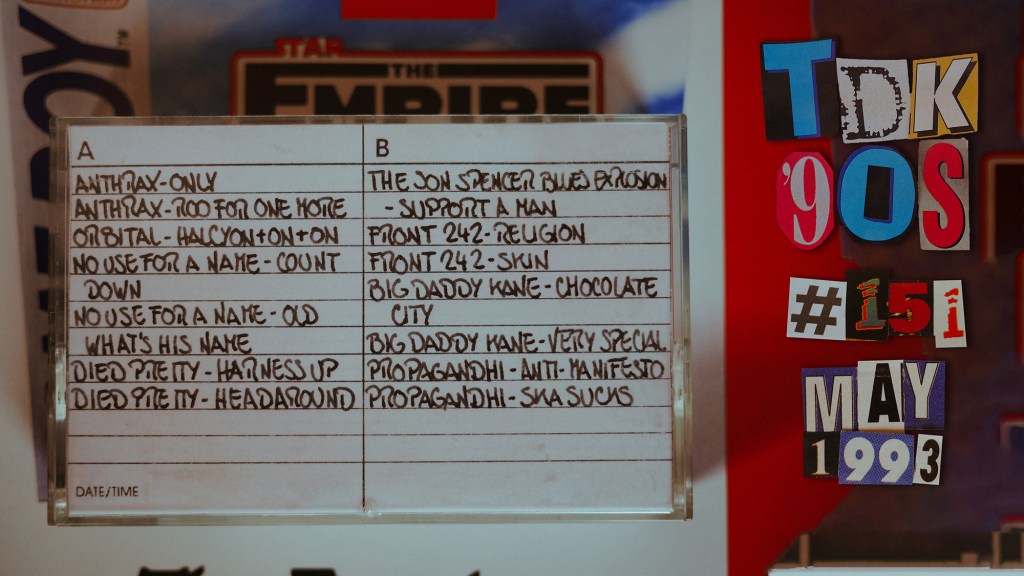 STAR
THE
EMPIRE
A
ANTHRAX-ONLY
ANTHRAX-ROO FOR ONE MORE
ORBITAL - HALCYON+ON+ON
NO USE FOR A NAME - COUNT
DOWN
NO USE FOR A NAME - OLD
WHAT'S HIS NAME
DIED PRETTY - HARNESS UP
DIED PRETTY - HEADAROUND
DATE/TIME
B
THE JON SPENCER BLUES EXPLOSION
- SUPPORT A MAN
FRONT 242-RELIGION
FRONT 242-SKIN
BIG DADDY KANE - CHOCOLATE
CITY
BIG DADDY KANE-VERY SPECIAL
PROPAGANDHI - ANTI-MANIFESTO
PROPAGANDHI - SKA SUCKS
TDK
'90S
#151
MAY
1993